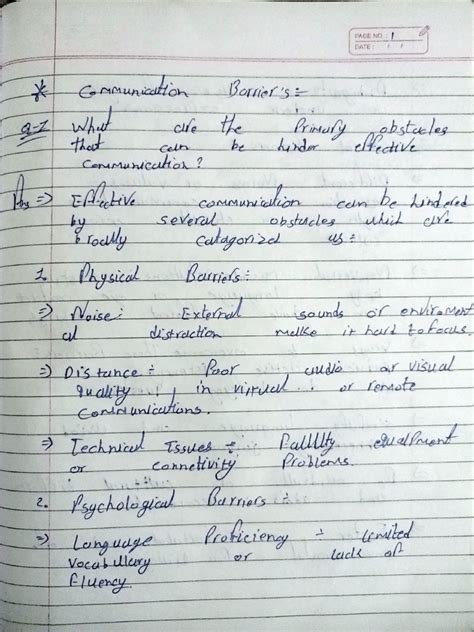 PAGE NO.: 1
DATE: / /
* Communication Barrier's :=
Q-1 What are the Primary obstacles
that can be hinder effective
communication?
Ans => Effective communication can be hindered
by several obstacles which are
broadly catagorized as :=
1. Physical Barriers :=
=> Noise : External sounds or enviroment
al distraction make it hard to focus.
=> Distance := Poor audio or visual
quality in virtual or remote
Communications.
=> Technical Issues := or connetivity Problems.
2. Psychological Barriers :=
=> Language Proficiency := Limited
Vocabullary or lack of
fluency